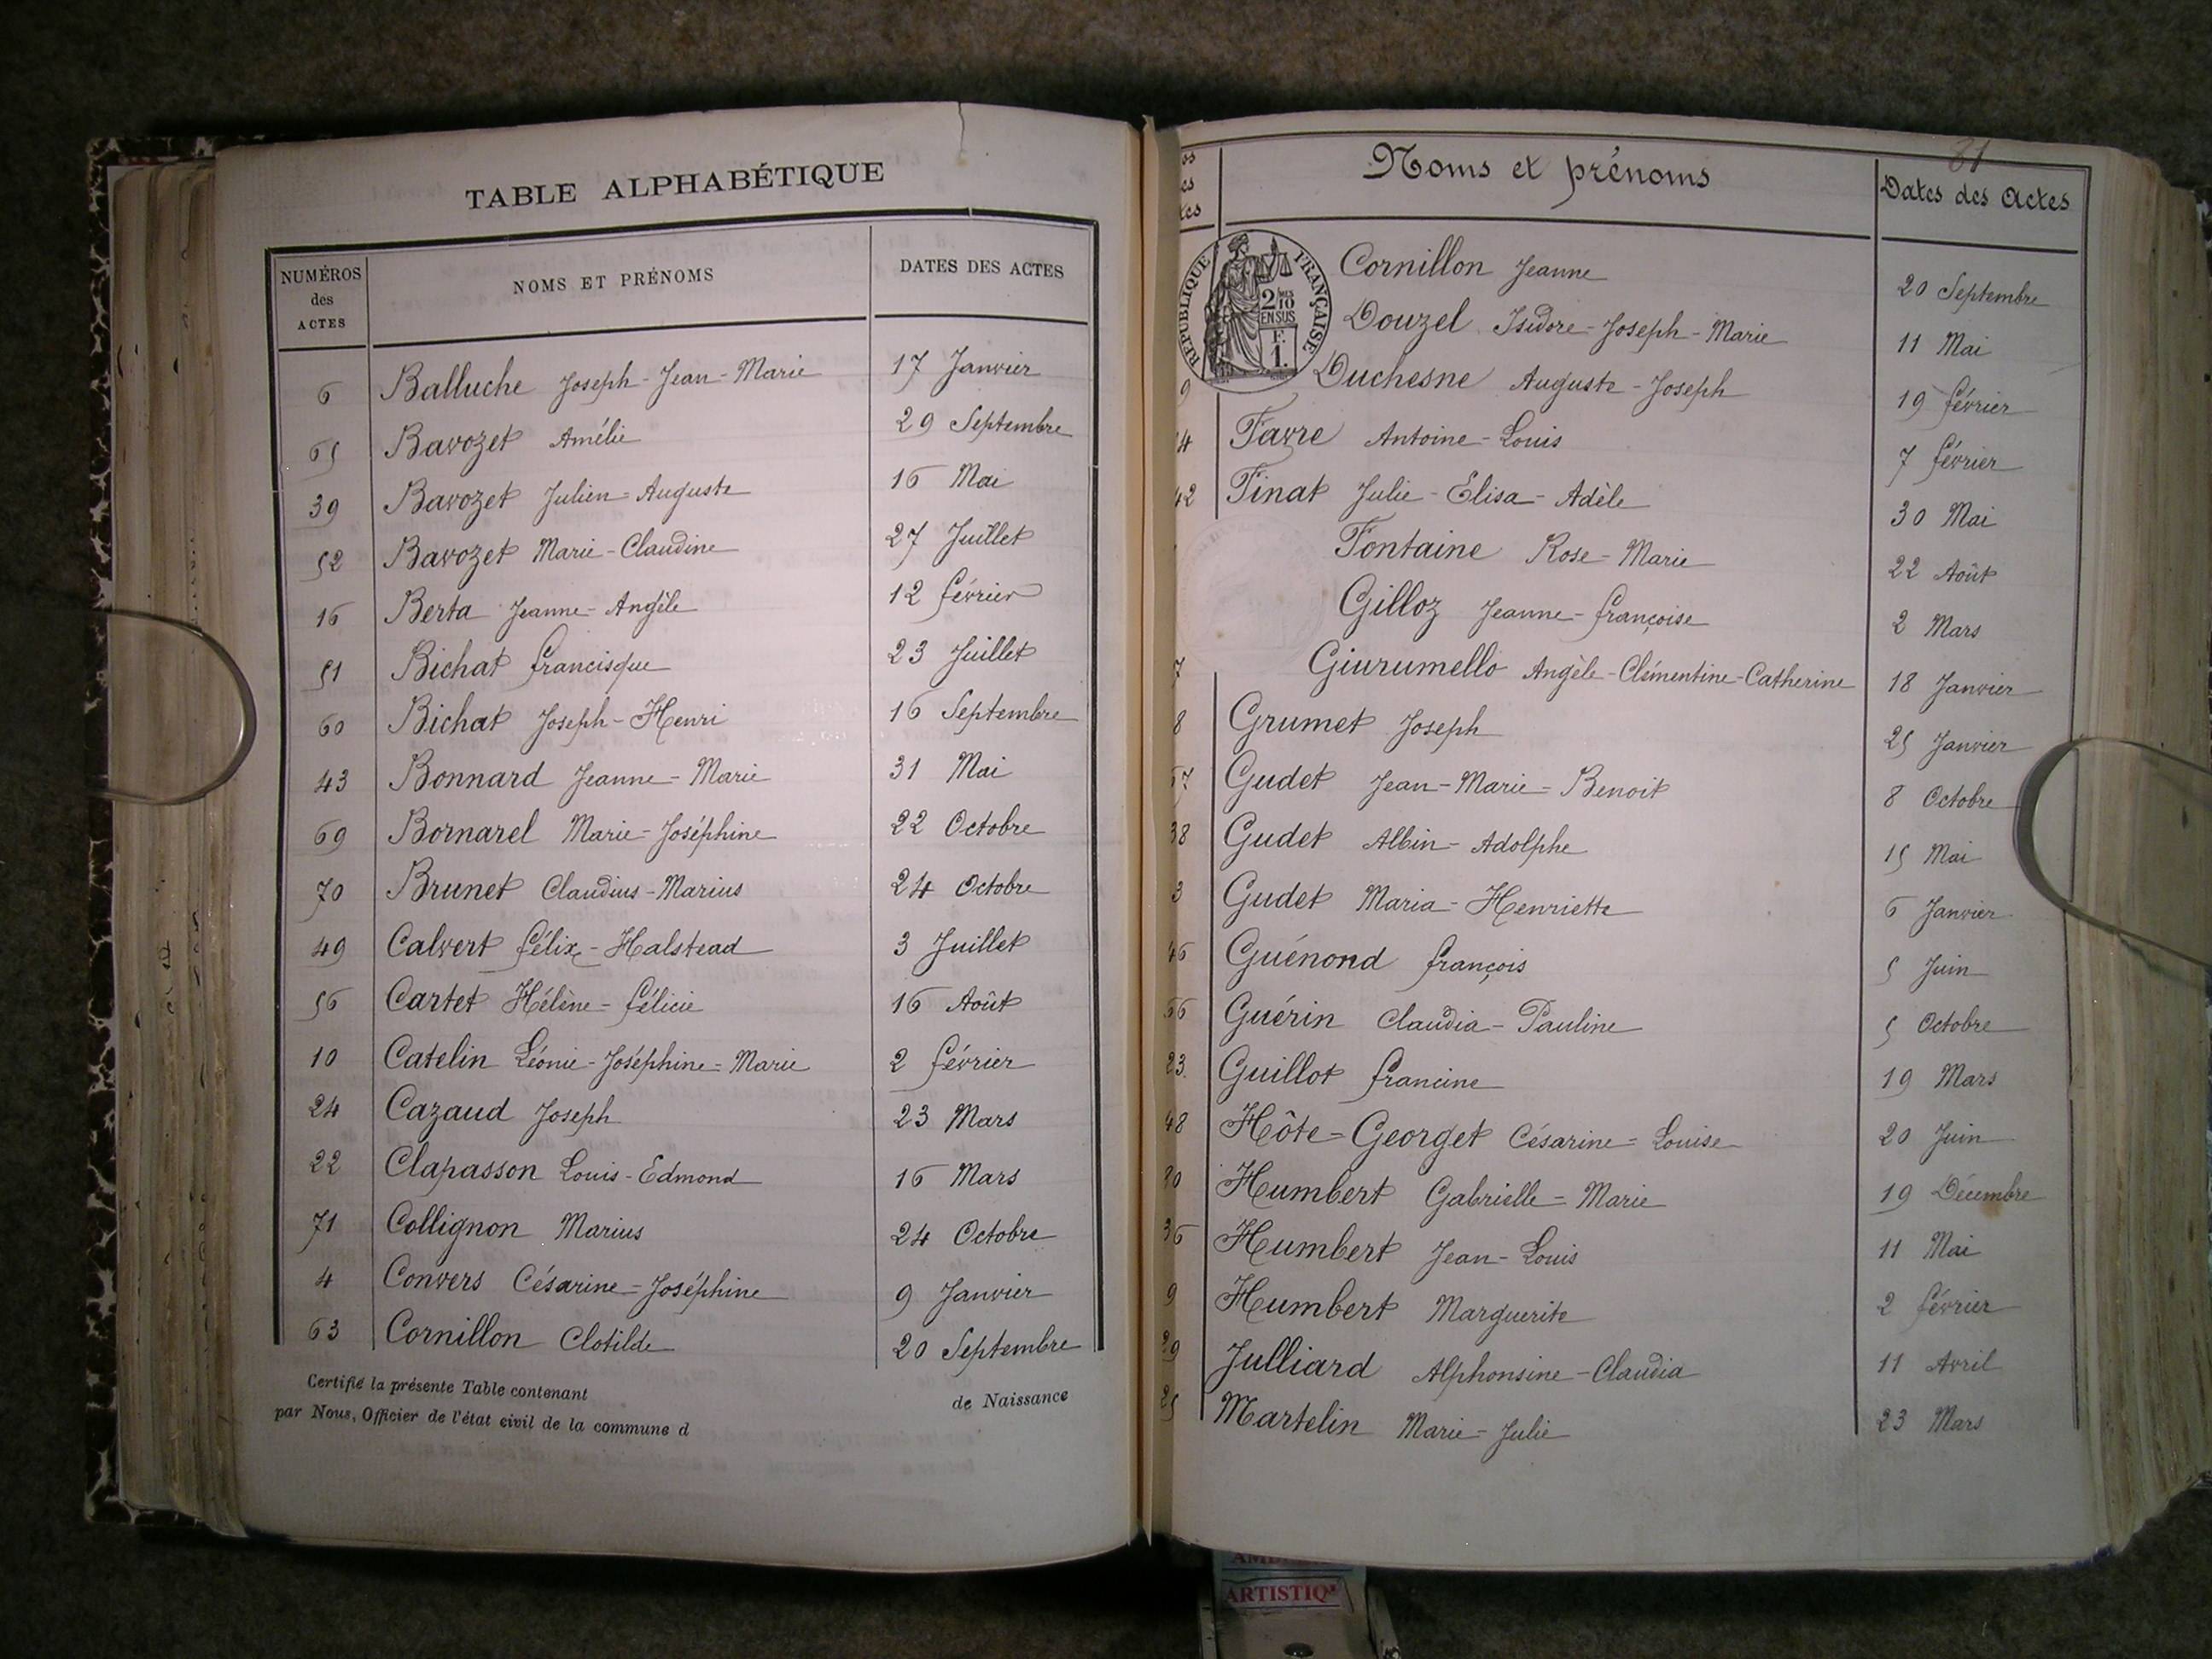 TABLE ALPHABÉTIQUE
NUMÉROS des ACTES NOMS ET PRÉNOMS DATES DES ACTES
6 Balluche Joseph-Jean-Marie 17 Janvier
65 Bavozet Amélie 29 Septembre
39 Bavozet Julien=Auguste 16 Mai
52 Bavozet Marie-Claudine 27 Juillet
16 Berta Jeanne-Angèle 12 février
51 Bichat francisque 23 Juillet
60 Bichat Joseph-Henri 16 Septembre
43 Bonnard Jeanne-Marie 31 Mai
69 Bornarel Marie-Joséphine 22 Octobre
70 Brunet Claudius-Marius 24 Octobre
49 Calvert félix-Halstead 3 Juillet
56 Cartet Hélène-félicie 16 Août
10 Catelin Léonie-Joséphine=Marie 2 février
24 Cazaud Joseph 23 Mars
22 Clapasson Louis-Edmond 16 Mars
71 Collignon Marius 24 Octobre
4 Convers Césarine=Joséphine 9 Janvier
63 Cornillon Clotilde 20 Septembre
Certifié la présente Table contenant de Naissance
par Nous, Officier de l'état civil de la commune d
31
os
es
tes
Noms et prénoms Dates des Actes
RÉPUBLIQUE FRANÇAISE
2/10 EN SUS
F. 1.
Cornillon Jeanne 20 Septembre
Douzel Isidore-Joseph-Marie 11 Mai
9 Duchesne Auguste-Joseph 19 février
14 Favre Antoine-Louis 7 février
42 Finat Julie-Élisa-Adèle 30 Mai
Fontaine Rose-Marie 22 Août
Gilloz Jeanne-françoise 2 Mars
7 Giurumello Angèle-Clémentine-Catherine 18 Janvier
8 Grumet Joseph 25 Janvier
67 Gudet Jean-Marie=Benoit 8 Octobre
38 Gudet Albin-Adolphe 15 Mai
3 Gudet Maria-Henriette 6 Janvier
46 Guénond françois 5 Juin
66 Guérin Claudia-Pauline 5 Octobre
23. Guillot francine 19 Mars
48 Hôte=Georget Césarine=Louise 20 Juin
80 Humbert Gabrielle=Marie 19 Décembre
36 Humbert Jean-Louis 11 Mai
9 Humbert Marguerite 2 février
29 Julliard Alphonsine-Claudia 11 Avril
25 Martelin Marie=Julie 23 Mars
ARTISTIQ